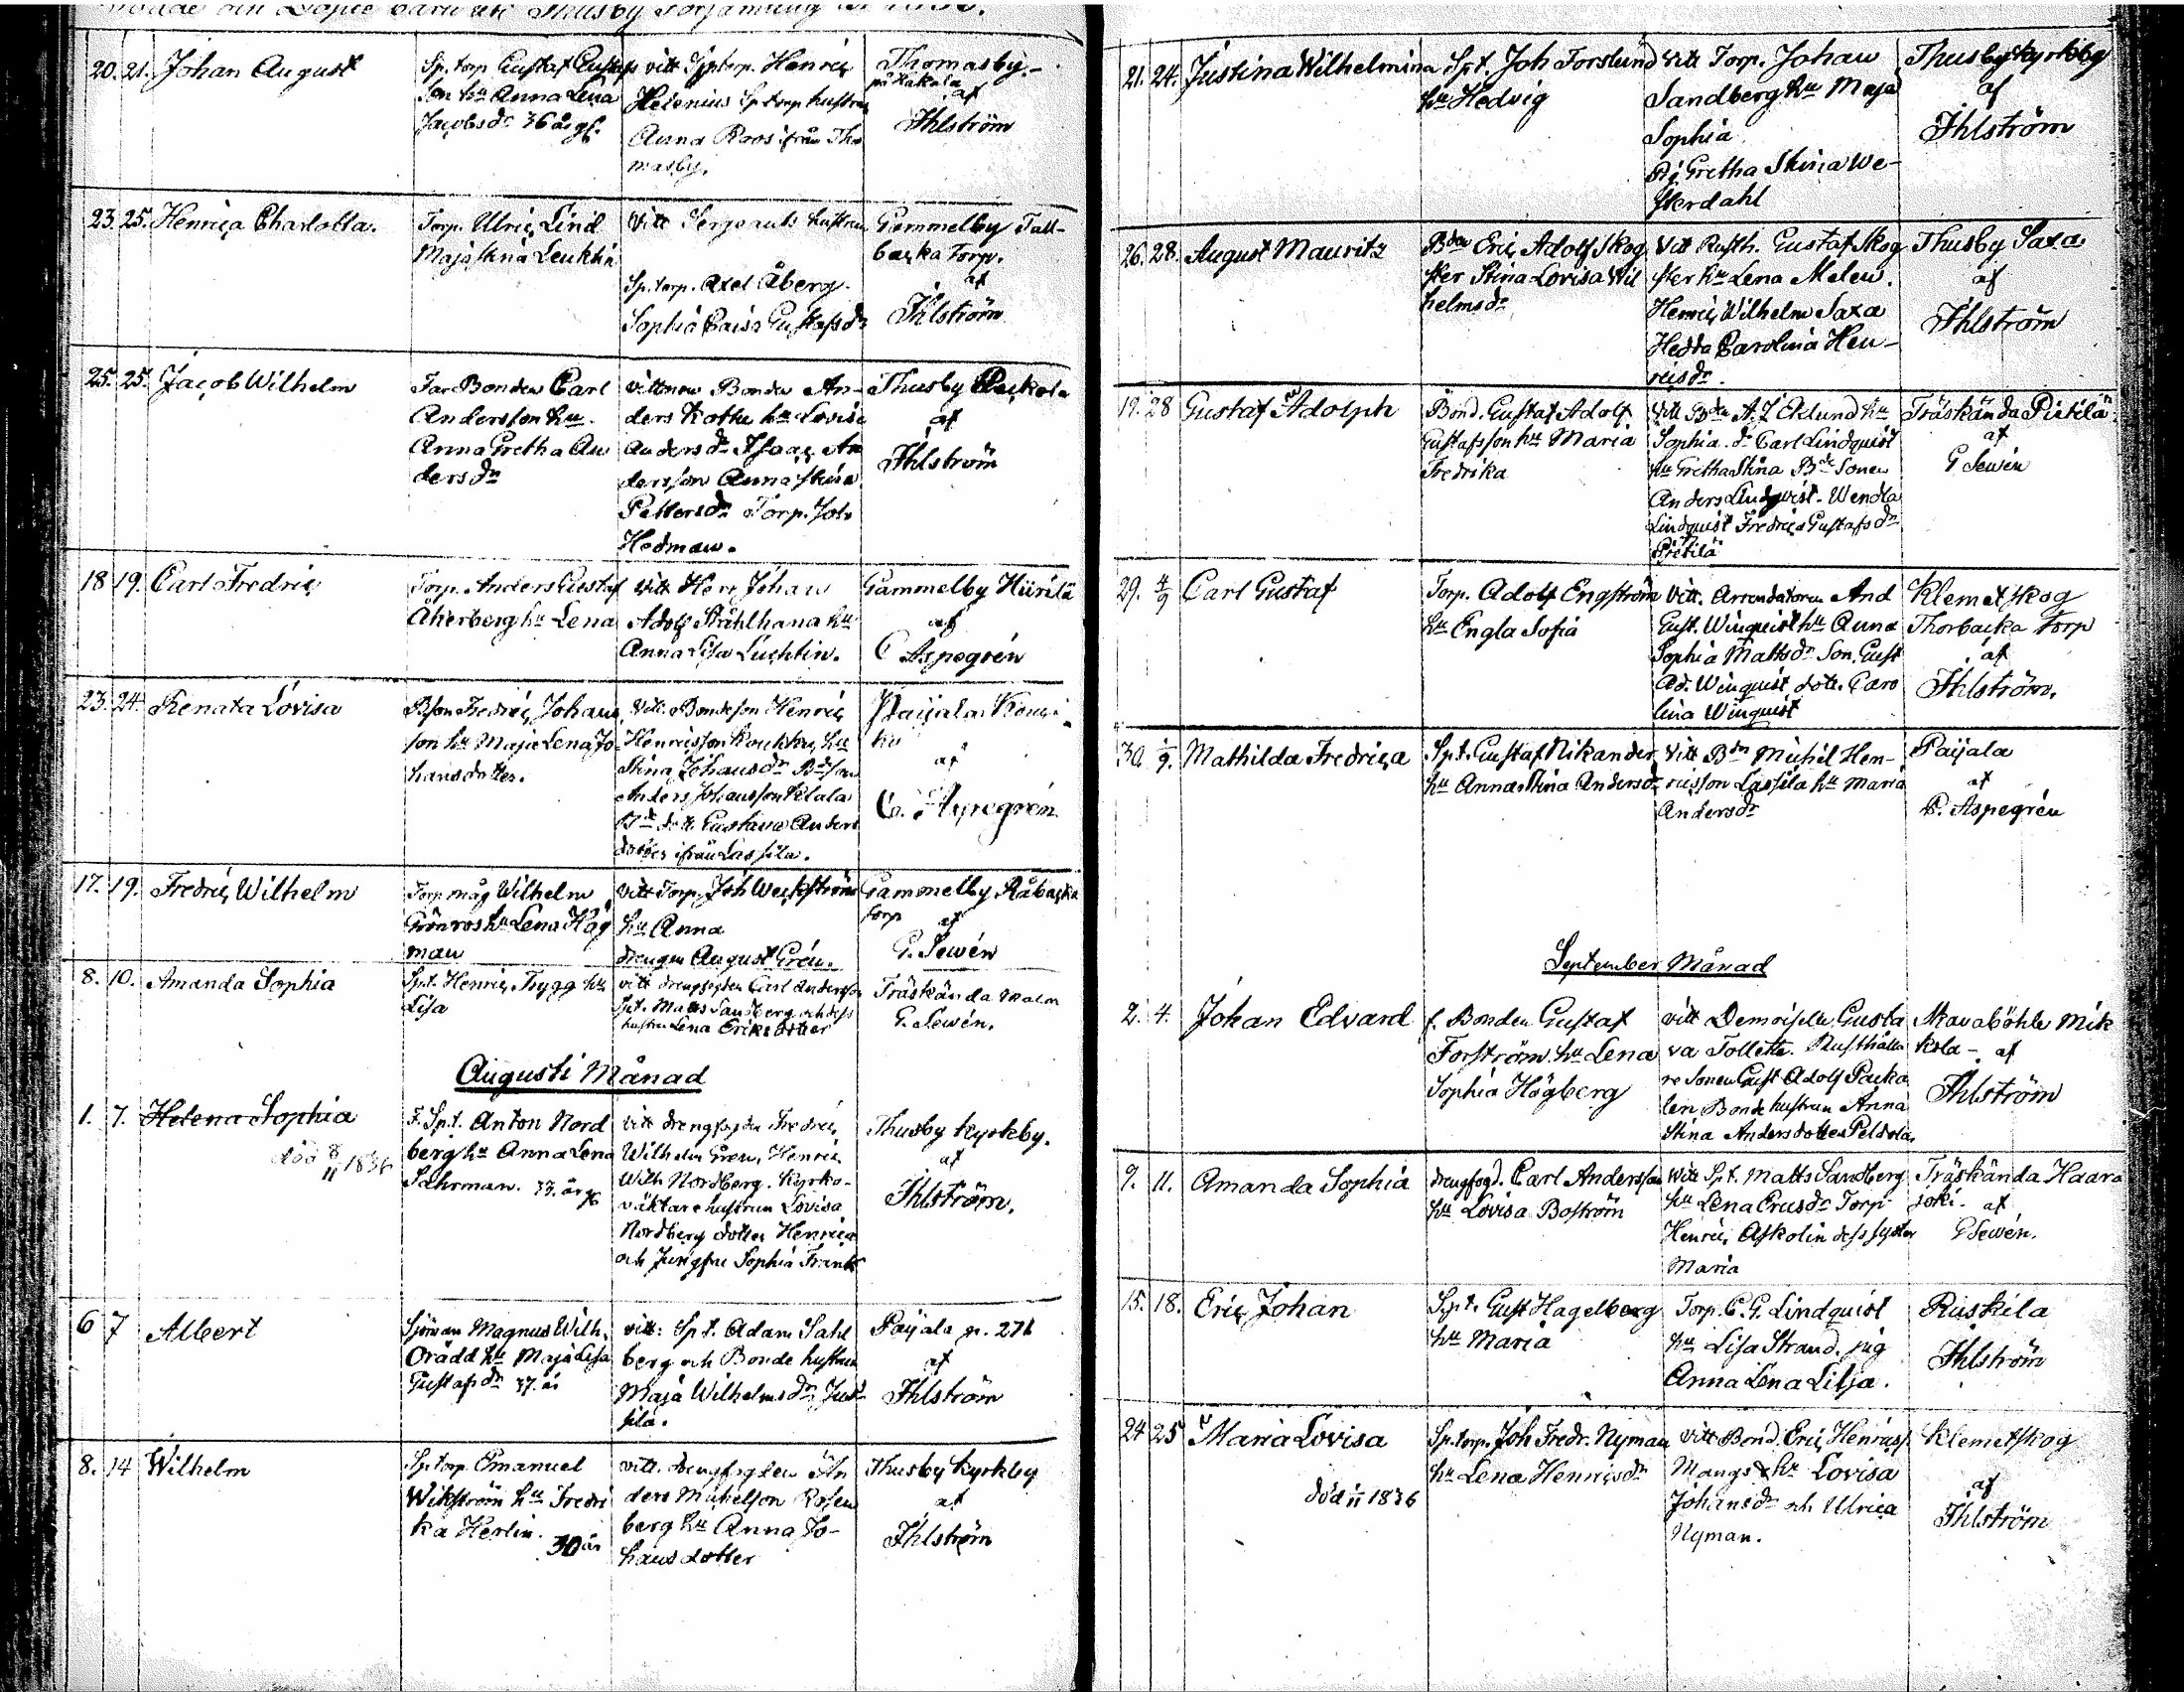 Födde och Döpte barn uti Thusby Församling år 1836.
20. 21. Johan August
Sp. torp Gustaf Gustafs
son hu Anna Lena
Jacobs dr 36 år gl.
vitt Sp torp. Henric
Helenius Sp torp hustru
Anna Roos ifrån Tho
masby.
Thomasby.
på Hakala
af
Ihlström
23. 25. Henrica Charlotta.
Torp. Ulric Lind
Maja Stina Leuktin
Vitt Sergeants hustru
Sp. torp. Axel Åberg.
Sophia Caisa Gustafs dr
Gammelby Tall-
backa Torp.
af
Ihlström
25. 25. Jacob Wilhelm
Far Bonden Carl
Andersson hu.
Anna Gretha An
ders dr
vittnen Bonden An-
ders Kothe hu Lovisa
Anders dr Isaac An
dersson Anna Stina
Petters dr Torp. Joh
Hedman.
Thusby Packola
af
Ihlström
18 19. Carl Fredric
Torp. Anders Gustaf
Åkerberg hu Lena
vitt Herr Johan
Adolf Stålhana hu
Anna Lisa Luchtin.
Gammelby Hürilä
af
C Aspegrén
23. 24. Renata Lovisa
B son Fredric Johans
son hu Maja Lena Jo-
hansdotter.
Vitt. Bondeson Henric
Henricsson hu
Stina Johans dr Bd son
Anders Johansson Klala
Bde dot. Gustava Anders
dotter ifrån Lassila.
Paijala Kouki-
ko
af
C. Aspegrén
17. 19. Fredric Wilhelm
Torp måg Wilhelm
Grönros hu Lena Hög
man
vitt Torp. Joh Weckström
hu Anna
drengen August Grén.
Gammelby Råbacka
torp af
G. Sewén
8. 10. Amanda Sophia
Spt. Henric Trygg hu
Lisa
vitt drengfogden Carl Andersson
Spt. Matts Sandberg och dess
hustru Lena Eriks dotter
Träskända Malm
G. Sewén.
Augusti Månad
1. 7. Helena Sophia
död 8/11 1836
F. Spt. Anton Nord
berg hu Anna Lena
Sahrman. 33. år gl
vitt drengfogden Fredric
Wilhelm Gren, Henric
Wilh Nordberg. Kyrko-
väktare hustrun Lovisa
Nordberg dotter Henrica
och Jungfru Sophia Frank
Thusby Kyrkby.
af
Ihlström.
6 7 Albert
Sjöman Magnus Wilh.
Orädd hu Maja Lisa
Gustafs dr 37. år
vitt: Spt. Adam Sahl
berg och Bonde hustrun
Maja Wilhelms dr Jus-
sila.
Paijala p. 271
af
Ihlström
8. 14 Wilhelm
Sp torp Emanuel
Wikström hu Fredri
ka Herlin. 30 år
vitt. drengfogden An
ders Mickelson Rosen
berg hu Anna Jo-
hans dotter
Thusby kyrkby
af
Ihlström
21. 24. Justina Wilhelmina
Spt. Joh Forslund
hu Hedvig
vitt Torp. Johan
Sandberg hu Maja
Sophia
Pig Gretha Stina We-
sterdahl
Thusby kyrkby
af
Ihlström
26. 28. August Mauritz
Bden Eric Adolf Skog
ster Stina Lovisa Wil
helms dr
Vitt Rusth. Gustaf Skog
ster hu Lena Malen.
Henric Wilhelm Saxa
Hedda Carolina Hen-
rics dr.
Thusby Saxa
af
Ihlström
19. 28 Gustaf Adolph
Bond. Gustaf Adolf
Gustafsson hu Maria
Fredrika
Vitt Bden A. Z Adlund hu
Sophia. dr Carl Lindquist
hu Gretha Stina Bde Sonen
Anders Lindqvist. Wendla
Lindquist Fredrica Gustafs dr
Pietilä
Träskända Pietilä
af
G Sewén
29. 4/9 Carl Gustaf
Torp. Adolf Engström
hu Engla Sofia
Vitt. Arrendatoren And
Gust. Winquist hu Anna
Sophia Matts dr Son. Gust
Ad. Winquist, dott. Caro
lina Winquist
Klemetskog
Thorbacka Torp
af
Ihlström.
30. 1/9. Mathilda Fredrica
Spt. Gustaf Nikander
hu Anna Stina Anders dr
Vitt Bdn Michel Hen-
ricsson Lassila hu Maria
Anders dr
Paijala
af
C. Aspegrén
September Månad
2. 4. Johan Edvard
f. Bonden Gustaf
Forström hu Lena
Sophia Högberg
vitt Demoiselle Gusta
va Tollette. Rusthålla
re Sonen Gust Adolf Packa
len Bonde hustrun Anna
Stina Andersdotter Peldola,
Skavaböhle Mik
kola - af
Ihlström
9. 11. Amanda Sophia
drengfogd. Carl Andersson
hu Lovisa Boström
Witt Spt. Matts Sandberg
hu Lena Ericsdr Torp
Henric Askolin dess syster
Maria
Träskända Haara
joki. af
G Sewén.
15. 18. Eric Johan
Spt. Gust Hagelberg
hu Maria
Torp. C. G. Lindquist
hu Lisa Strand. pig
Anna Lena Lilja.
Ruskila
Ihlström
24 25 Maria Lovisa
död 1/11 1836
Sp. torp. Joh Fredr. Nyman
hu Lena Henrics dr
vitt Bond. Eric Henricss
Mangs & hu Lovisa
Johans dr och Ulrica
Nyman.
Klemetskog
af
Ihlström